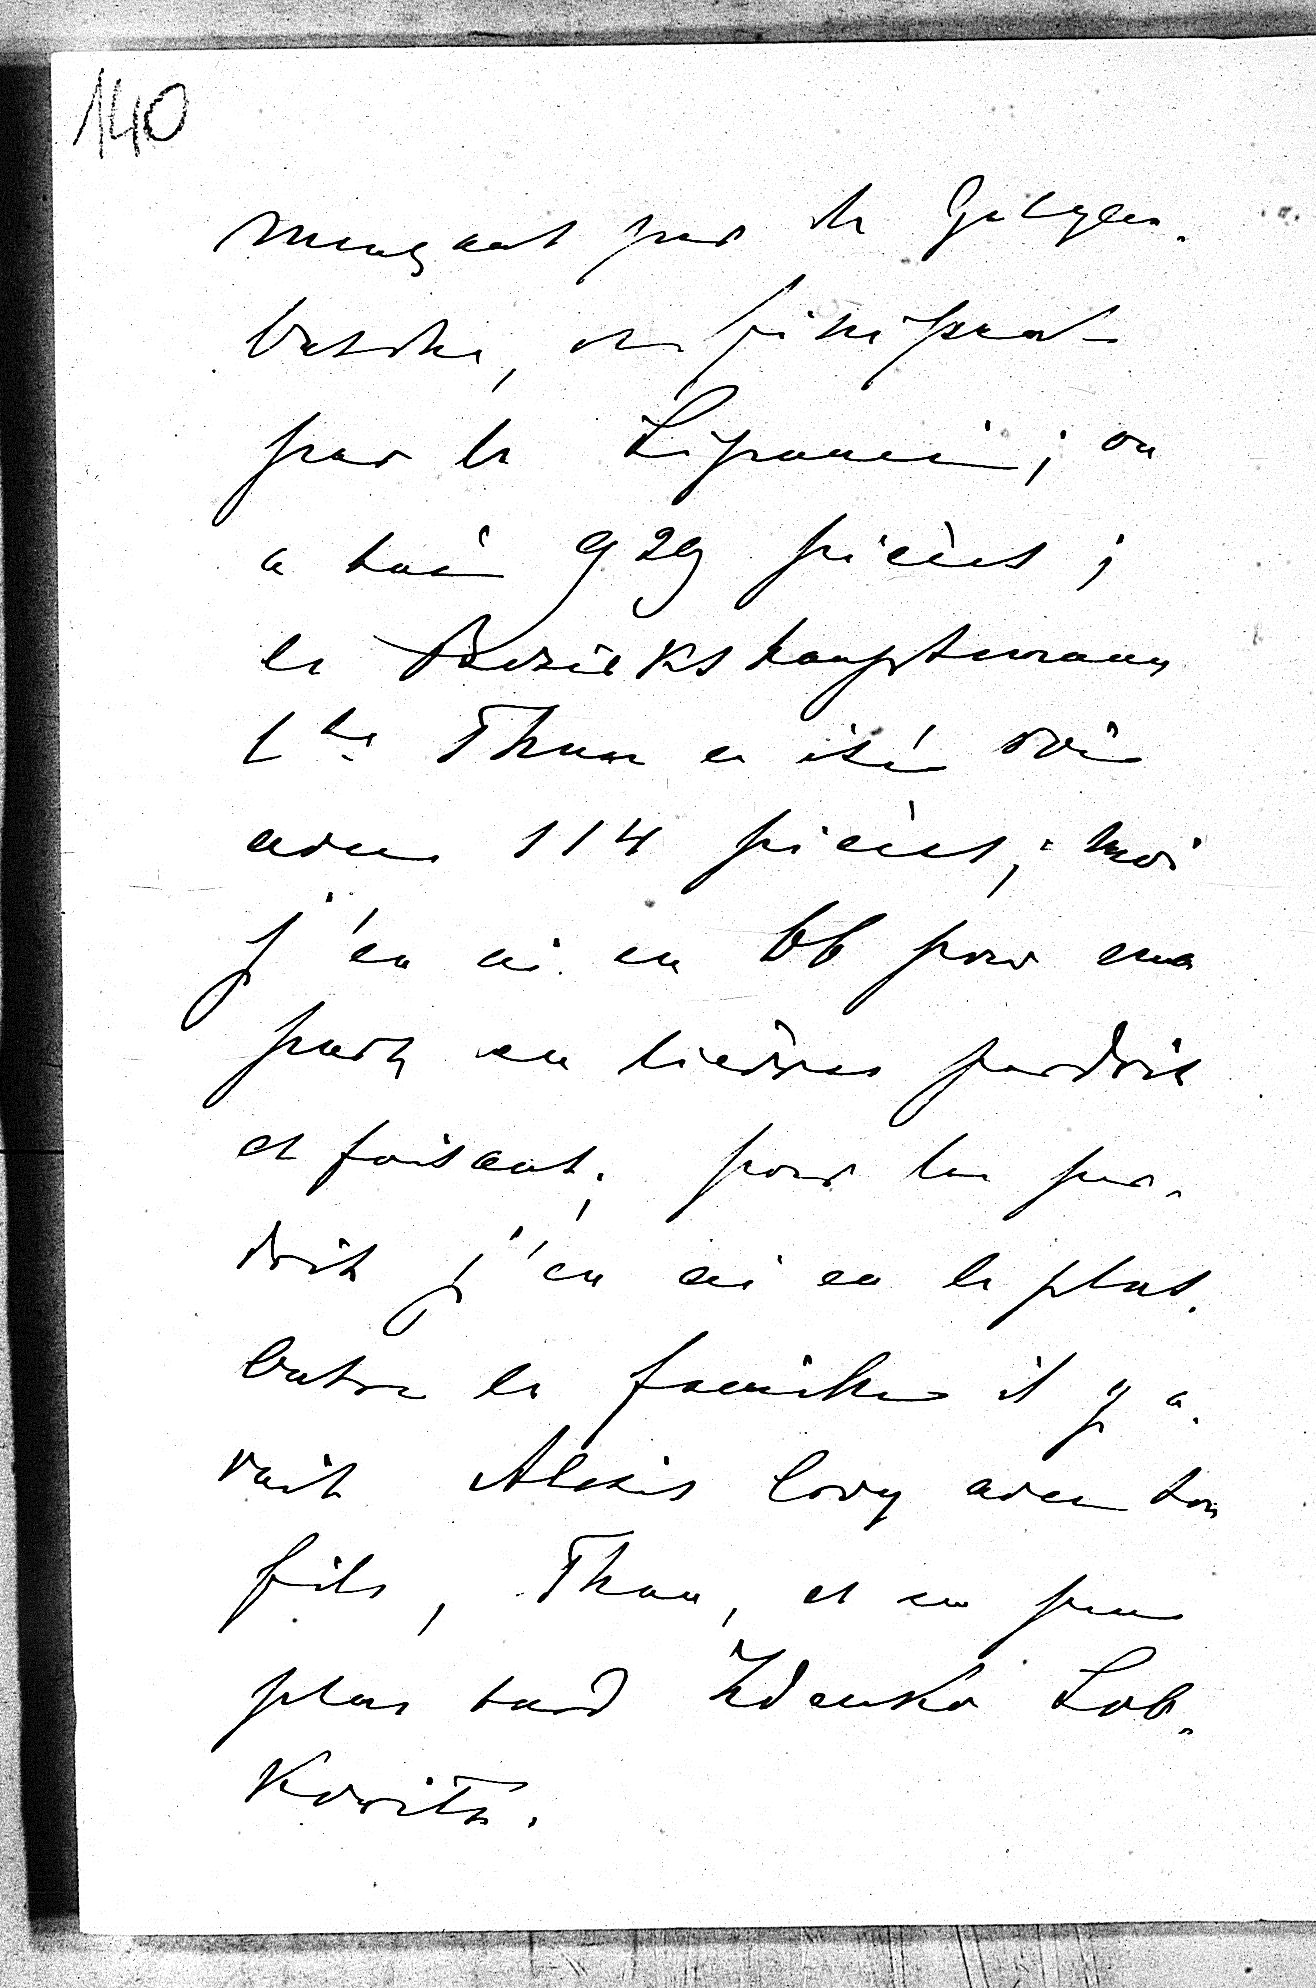 140
mençant par le Galgen-
butska, et finissant
par la Lipanei; on
a tué 929 pièces;
le Bezirkshauptmann
Cte Thun a été roi
avec 114 pièces; moi
j'en ai eu 66 pour ma
part en lièvres perdrix
et faisant; pour les per-
drix j'en ai eu le plus.
Outre la famille il y a-
vait Alexis Lovy avec son
fils, Thun, et un peu
plus tard Zdenko Lob-
kowitz.